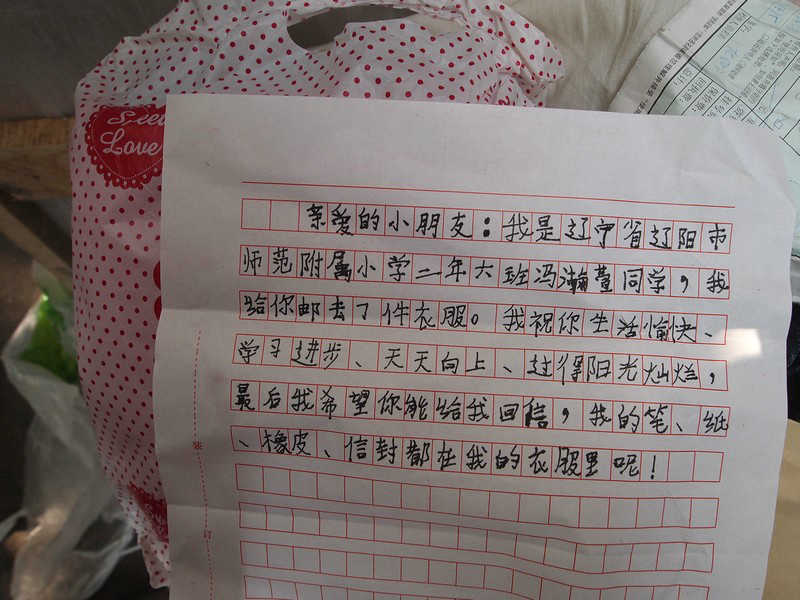 Love
亲爱的小朋友：我是辽宁省辽阳市
师范附属小学二年六班冯瀚萱同学，我
给你邮去了件衣服。我祝你生活愉快、
学习进步、天天向上、过得阳光灿烂，
最后我希望你能给我回信，我的笔、纸
、橡皮、信封都在我的衣服里呢！
装
订